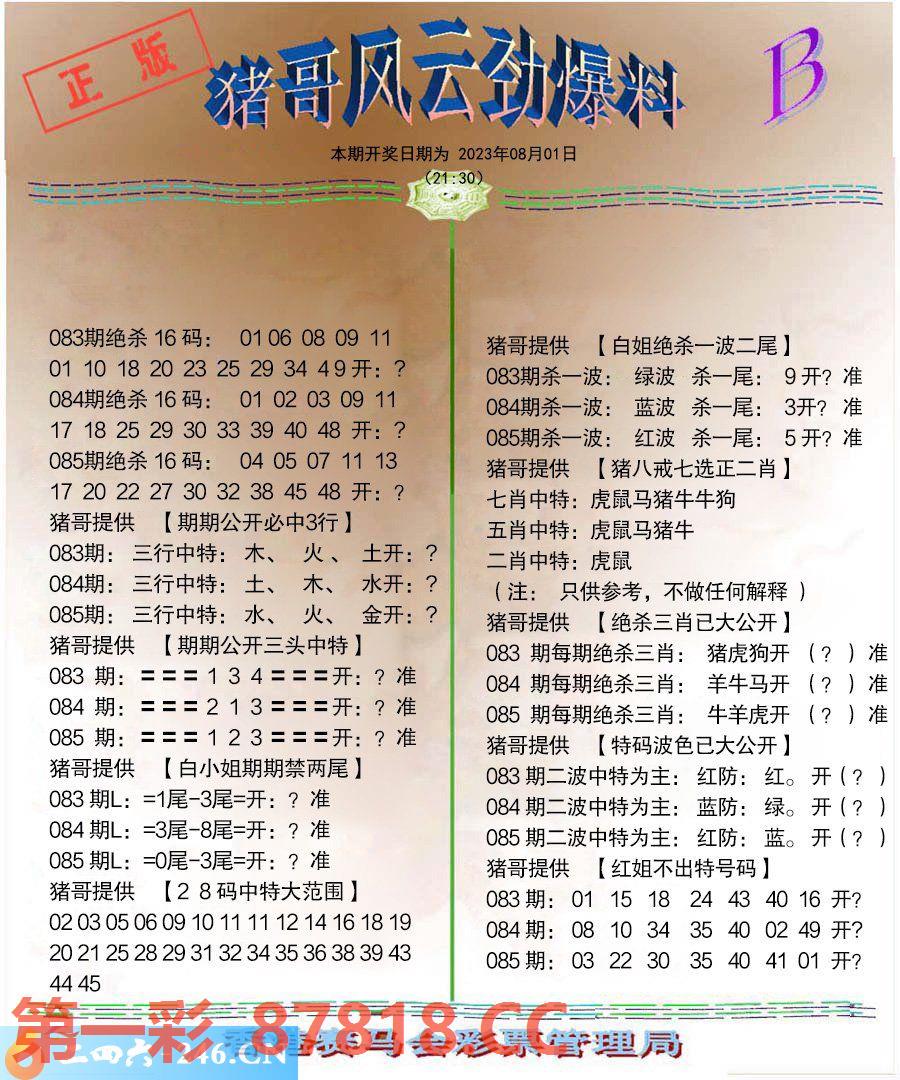 正版
猪哥风云劲爆料
B
本期开奖日期为 2023年08月01日
(21:30)
083期绝杀 16 码： 01 06 08 09 11
01 10 18 20 23 25 29 34 4 9 开：?
084期绝杀 16 码： 01 02 03 09 11
17 18 25 29 30 33 39 40 48 开：?
085期绝杀 16 码： 04 05 07 11 13
17 20 22 27 30 32 38 45 48 开：?
猪哥提供 【期期公开必中3行】
083期：三行中特：木、 火 、 土开：?
084期：三行中特：土、 木、 水开：?
085期：三行中特：水、 火、 金开：?
猪哥提供 【期期公开三头中特】
083 期：＝＝＝ 1 3 4 ＝＝＝开：? 准
084 期：＝＝＝ 2 1 3 ＝＝＝开：? 准
085 期：＝＝＝ 1 2 3 ＝＝＝开：? 准
猪哥提供 【白小姐期期禁两尾】
083 期L：=1尾-3尾=开：? 准
084 期L：=3尾-8尾=开：? 准
085 期L：=0尾-3尾=开：? 准
猪哥提供 【２８码中特大范围】
02 03 05 06 09 10 11 11 12 14 16 18 19
20 21 25 28 29 31 32 34 35 36 38 39 43
44 45
猪哥提供 【白姐绝杀一波二尾】
083期杀一波： 绿波 杀一尾： 9 开? 准
084期杀一波： 蓝波 杀一尾： 3开? 准
085期杀一波： 红波 杀一尾： 5 开? 准
猪哥提供 【猪八戒七选正二肖】
七肖中特：虎鼠马猪牛牛狗
五肖中特：虎鼠马猪牛
二肖中特：虎鼠
（注： 只供参考，不做任何解释 ）
猪哥提供 【绝杀三肖已大公开】
083 期每期绝杀三肖： 猪虎狗开 （? ）准
084 期每期绝杀三肖： 羊牛马开 （? ）准
085 期每期绝杀三肖： 牛羊虎开 （? ）准
猪哥提供 【特码波色已大公开】
083 期二波中特为主：红防：红。开（? ）
084 期二波中特为主：蓝防：绿。开（? ）
085 期二波中特为主：红防：蓝。开（? ）
猪哥提供 【红姐不出特号码】
083 期： 01 15 18 24 43 40 16 开?
084 期： 08 10 34 35 40 02 49 开?
085 期： 03 22 30 35 40 41 01 开?
第一彩 87818.CC
二四六 246.CN
香港赛马会彩票管理局